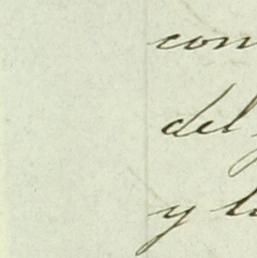 con
del
y l